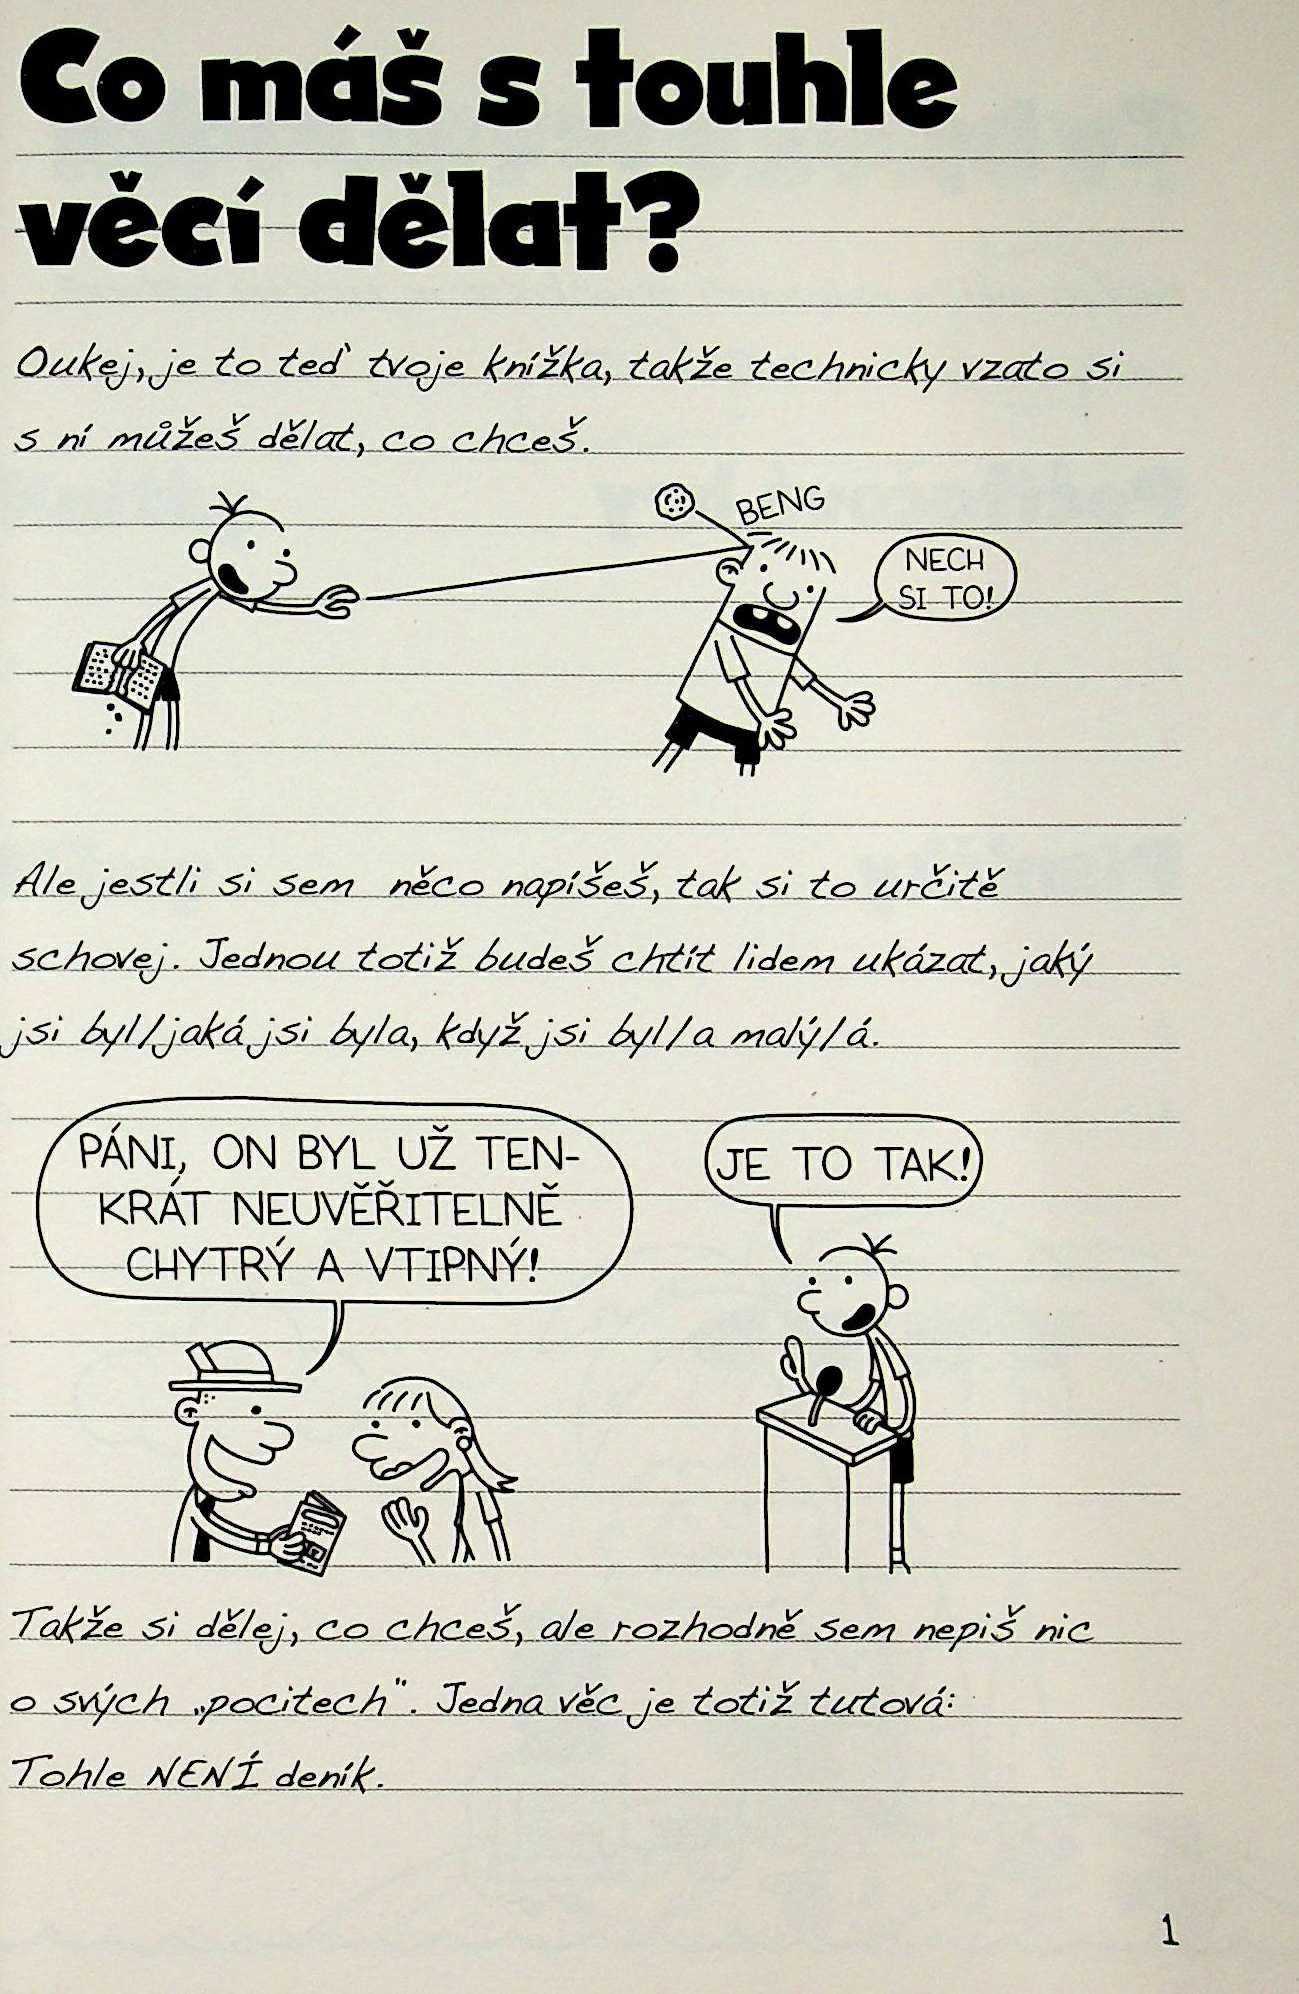 Co máš s touhle
věcí dělat?
Oukej, je to teď tvoje knížka, takže technicky vzato si
s ní můžeš dělat, co chceš.
BENG
NECH
SI TO!
Ale jestli si sem něco napíšeš, tak si to určitě
schovej. Jednou totiž budeš chtít lidem ukázat, jaký
jsi byl/jaká jsi byla, když jsi byl/a malý/á.
PÁNI, ON BYL UŽ TEN-
KRÁT NEUVĚŘITELNĚ
CHYTRÝ A VTIPNÝ!
JE TO TAK!
Takže si dělej, co chceš, ale rozhodně sem nepiš nic
o svých „pocitech". Jedna věc je totiž tutová:
Tohle NENÍ deník.
1